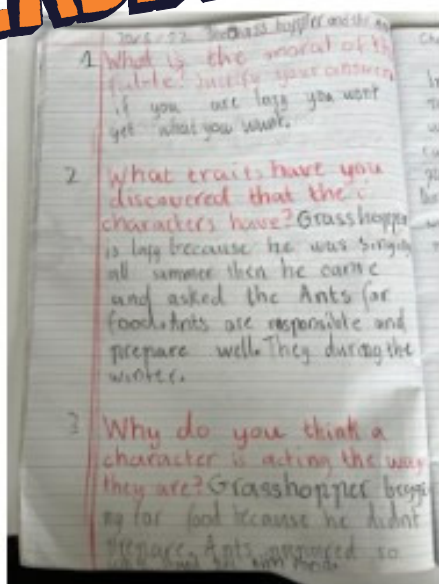 20/5/22 The Grass hopper and the An
1 What is the moral of th
fable? Justify your answer.
if you are lazy you wont
get what you want.
2 What traits have you
discovered that the
characters have? Grasshopper
is lazy because he was singing
all summer then he came
and asked the Ants for
food. Ants are responsible and
prepare well. They during the
winter.
3 Why do you think a
character is acting the way
they are? Grasshopper beggi
ng for food because he didnt
prepare. Ants so